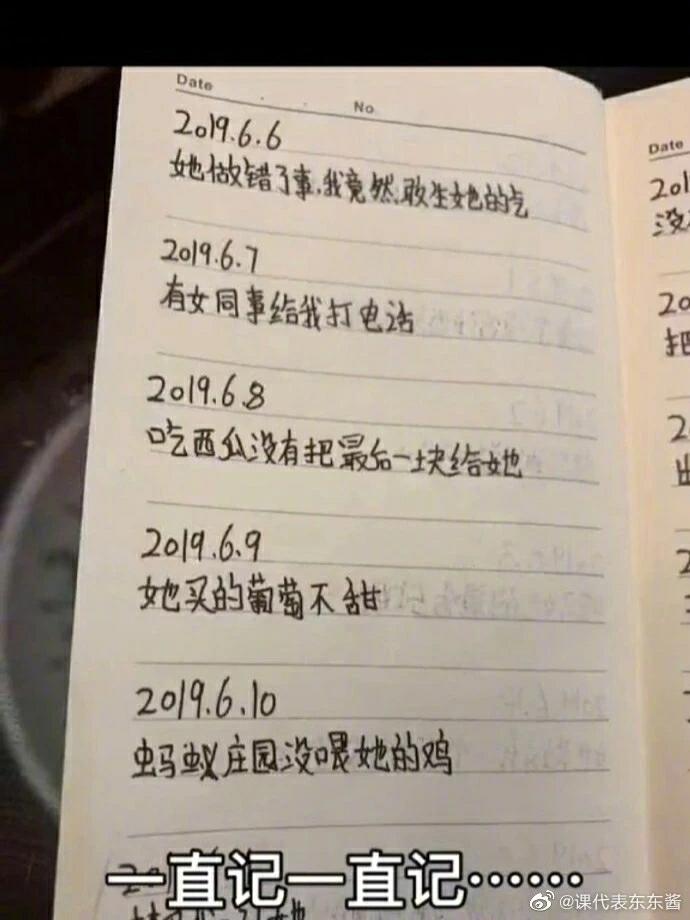 Date
No.
2019.6.6
她做错了事,我竟然敢生她的气
2019.6.7
有女同事给我打电话
2019.6.8
吃西瓜没有把最后一块给她
2019.6.9
她买的葡萄不甜
2019.6.10
蚂蚁庄园没喂她的鸡
Date
201
没
20
把
2
出
一直记一直记……
@课代表东东酱